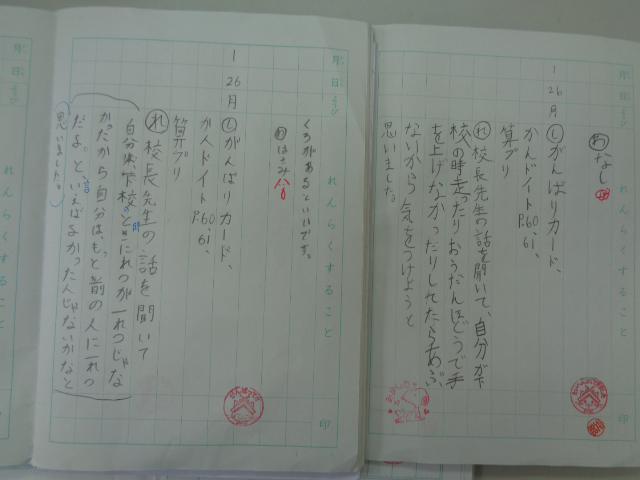 月 日 ようび れんらくすること 印
なし
1 26 月 ㋛がんばりカード、
かんドイト P.60、61、
算プリ
㋹校長先生の話を聞いて、自分が下
校の時走ったりおうだんほどうで手
を上げなかったりしてたらあぶ
ないから気をつけようと
思いました。
月 日 ようび れんらくすること 印
くろがあるといいです。
はさみ
1 26 月 ㋛がんばりカード、
かんドイト P.60、61、
算プリ
㋹校長先生の話を聞いて
自分は下校時にれつが一れつじゃな
かったから自分は、もっと前の人に一れつ
だよ。と、いえばよかったんじゃないかなと
思いました。